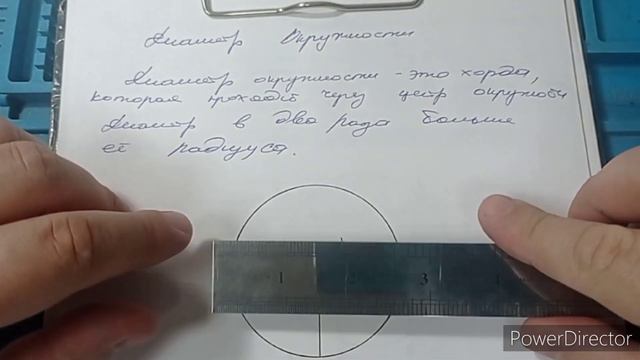 Диаметр Окружности
Диаметр окружности - это хорда,
которая проходит через центр окружности
Диаметр в два раза больше
её радиуса.
1 2 3
PowerDirector